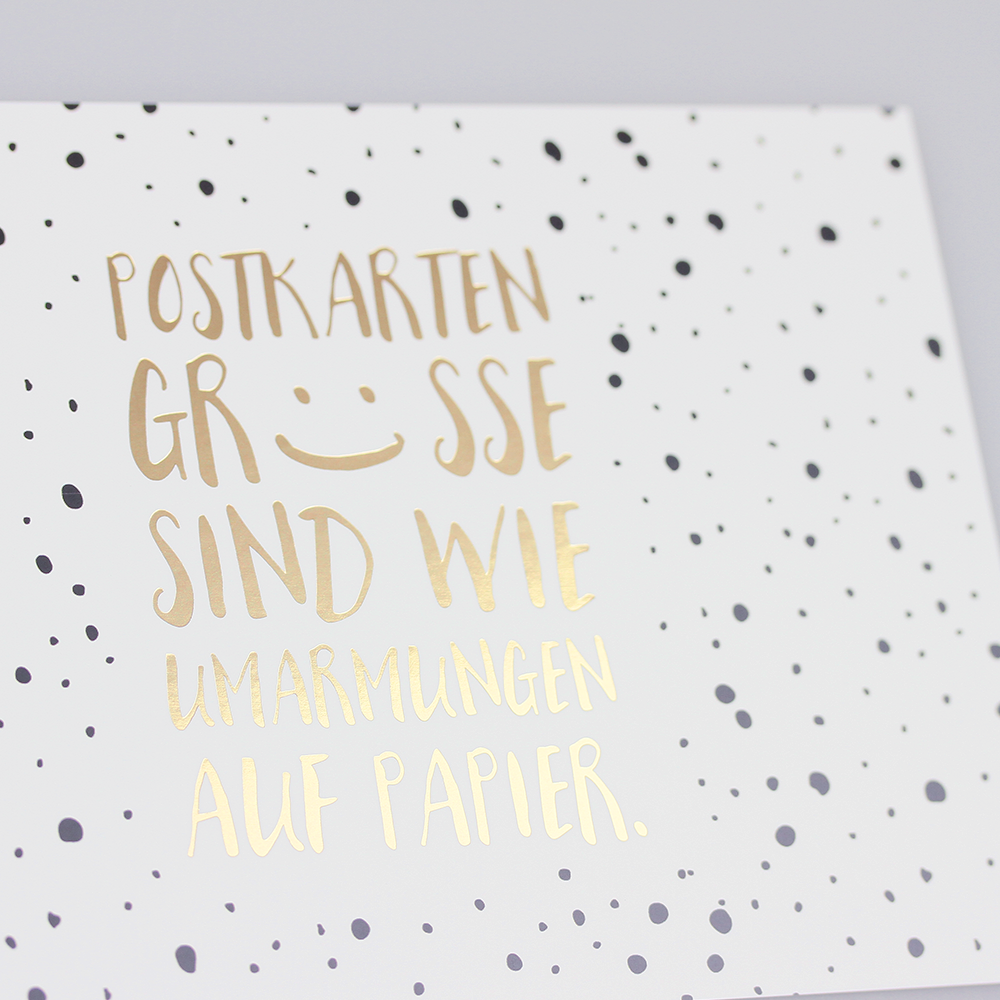 POSTKARTEN
GRÜSSE
SIND WIE
UMARMUNGEN
AUF PAPIER.